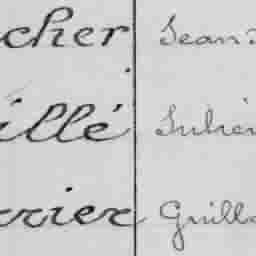 cher Jean-
illé Julien
rrier Guilla